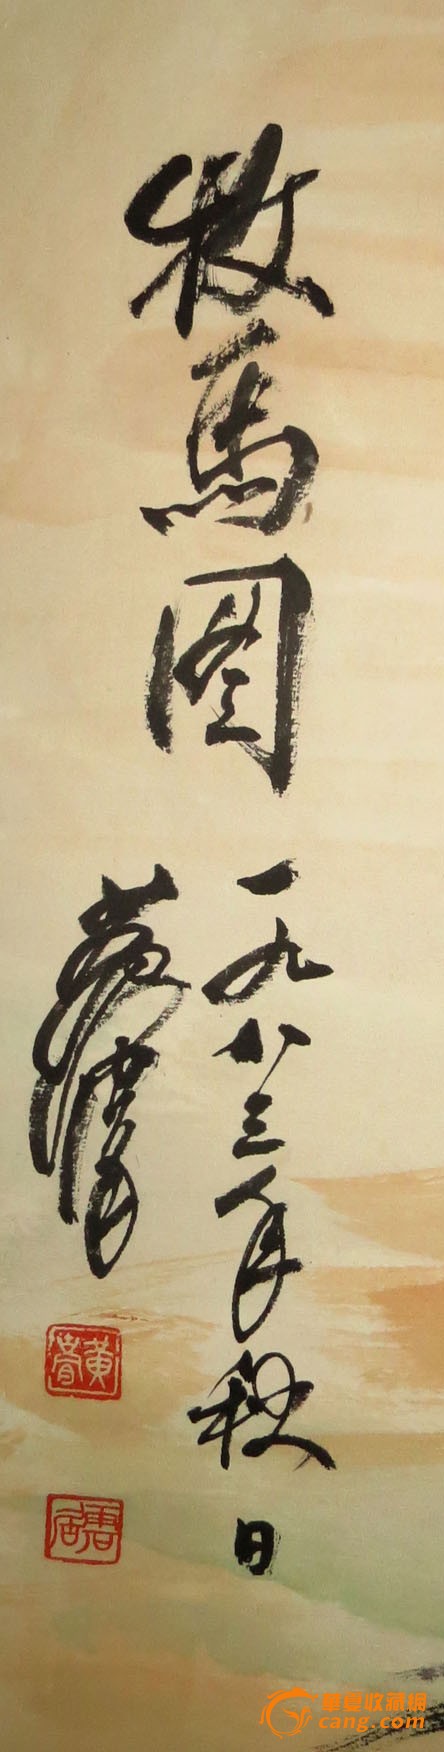 牧馬图
一九八三年秋日
黄胄
黄胄
華夏收藏網
cang.com